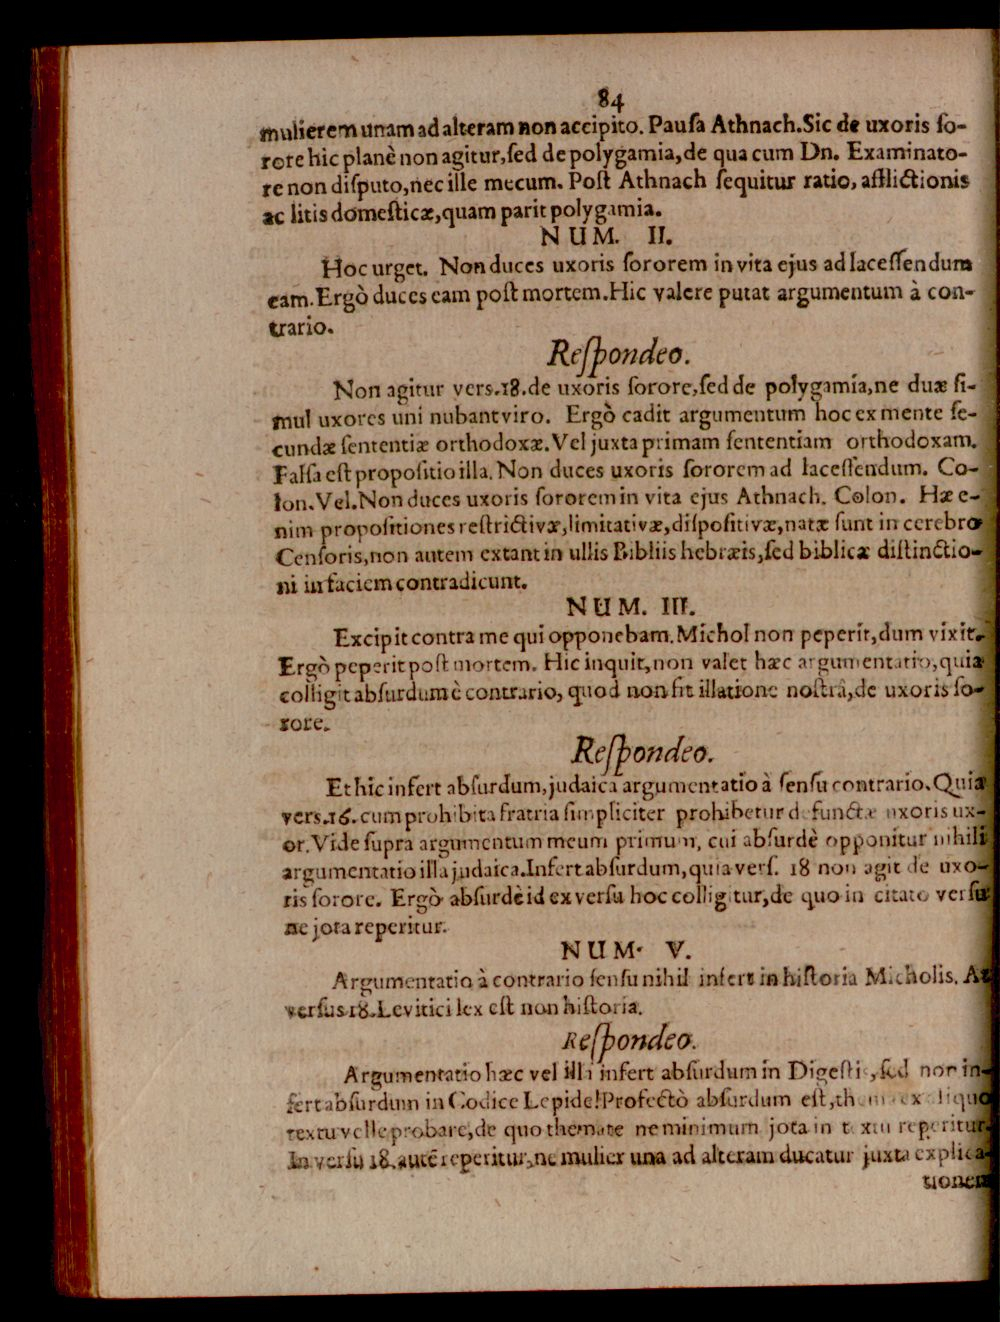 84
mulierem unam ad alteram non accipito. Pauſa Athnach. Sic de uxoris ſo-
rore hic planè non agitur, ſed de polygamia, de qua cum Dn. Examinato-
re non diſputo, nec ille mecum. Poſt Athnach ſequitur ratio, afflictionis
ac litis domeſticæ, quam parit polygamia.
NUM. II.
Hoc urget. Non duces uxoris ſororem in vita ejus ad laceſſendum
eam. Ergò duces eam poſt mortem. Hic valere putat argumentum à con-
trario.
Reſpondeo.
Non agitur verſ. 18. de uxoris ſorore, ſed de polygamia, ne duæ ſi-
mul uxores uni nubant viro. Ergò cadit argumentum hoc ex mente ſe-
cundæ ſententiæ orthodoxæ. Vel juxta primam ſententiam orthodoxam.
Falſa eſt propoſitio illa. Non duces uxoris ſororem ad laceſſendum. Co-
lon. Vel. Non duces uxoris ſororem in vita ejus Athnach. Colon. Hæ e-
nim propoſitiones reſtrictivæ, limitativæ, diſpoſitivæ, natæ ſunt in cerebro
Cenſoris, non autem extant in ullis Bibliis hebræis, ſed biblicæ diſtinctio-
ni in faciem contradicunt.
NUM. III.
Excipit contra me qui opponebam. Michol non peperit, dum vixit.
Ergò peperit poſt mortem. Hic inquit, non valet hæc argumentatio, quia
colligit abſurdum è contrario, quod non fit illatione noſtrâ, de uxoris ſo-
rore.
Reſpondeo.
Et hic infert abſurdum, judaica argumentatio à ſenſu contrario. Quia
verſ. 16. cum prohibita fratria ſimpliciter prohibetur defunctæ uxoris ux-
or. Vide ſupra argumentum meum primum, cui abſurdè opponitur nihili
argumentatio illa judaica. Infert abſurdum, quia verſ. 18 non agit de uxo-
ris ſorore. Ergò abſurdè id ex verſu hoc colligitur, de quo in citato verſu
ne jota reperitur.
NUM. V.
Argumentatio à contrario ſenſu nihil infert in hiſtoria Micholis. At
verſus 18. Levitici lex eſt non hiſtoria.
Reſpondeo.
Argumentatio hæc vel illa infert abſurdum in Digeſtis, ſed non in-
fert abſurdum in Codice Lepide! Profectò abſurdum eſt, thema ex aliquo
textu velle probare, de quo themate ne minimum jota in textu reperitur.
In verſu 18. autē reperitur, ne mulier una ad alteram ducatur juxta explica-
tionem